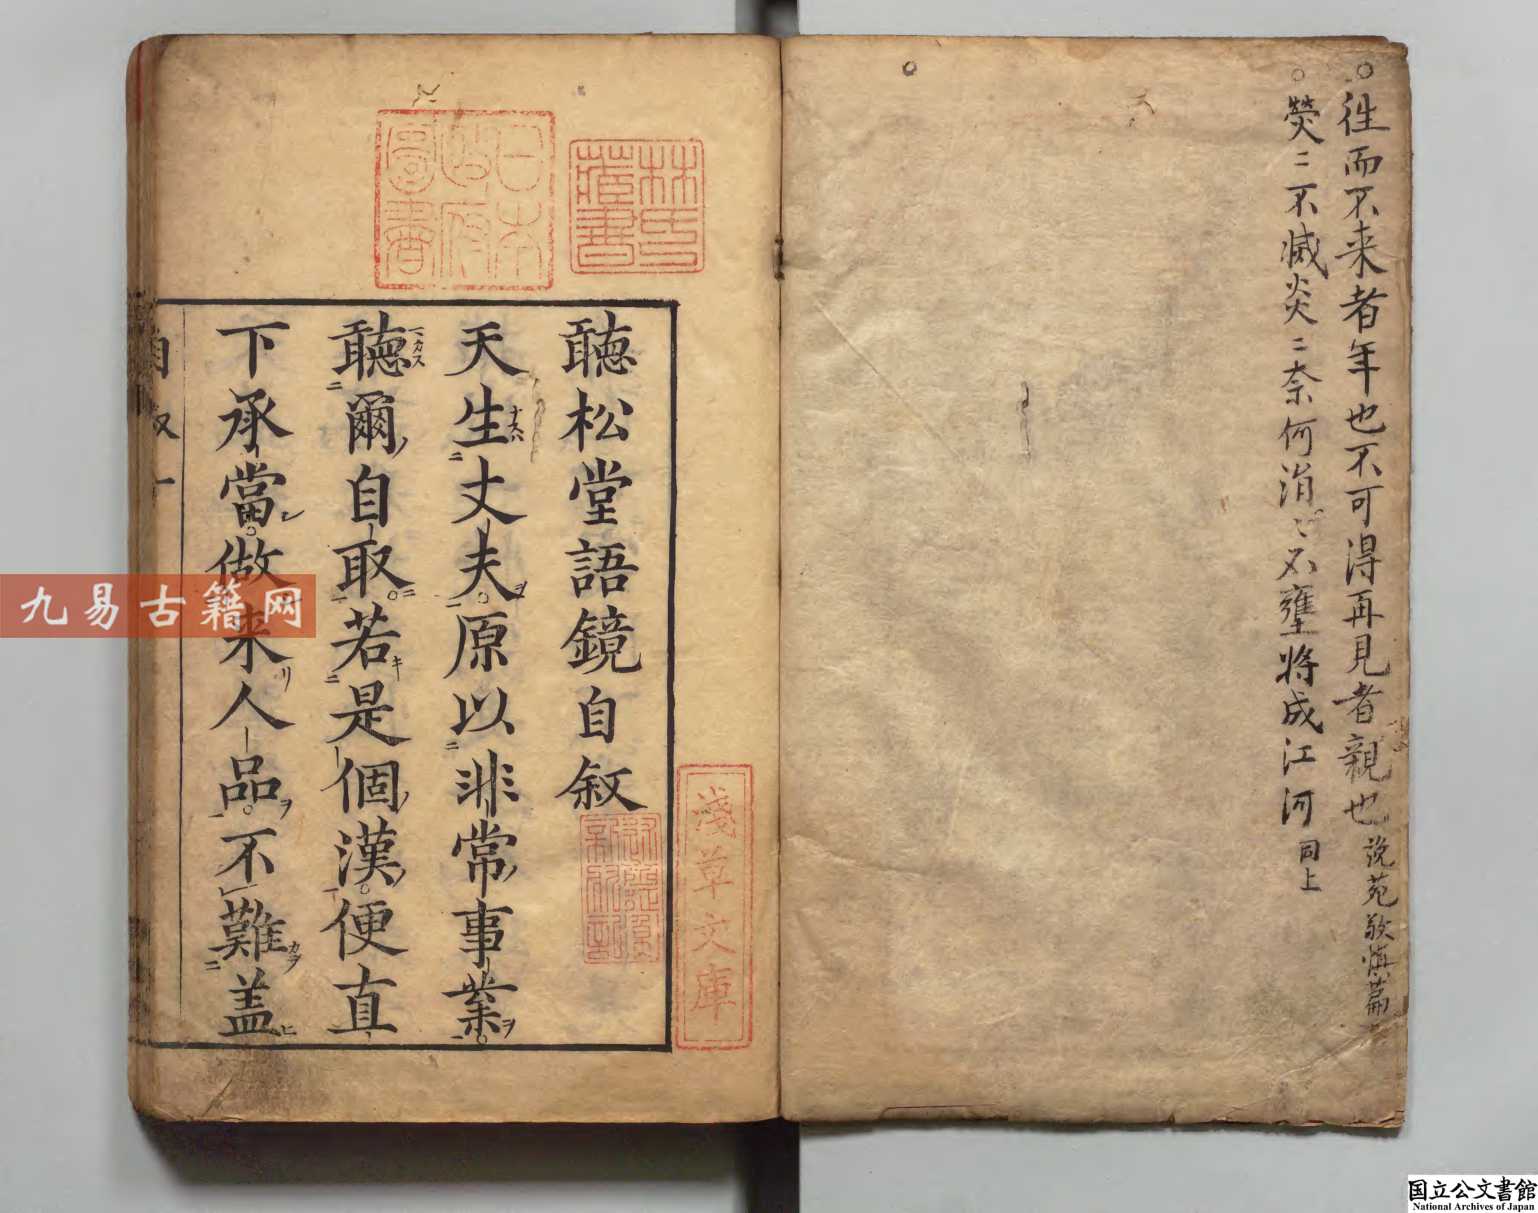 往而不来者年也不可得再見者親也 説苑敬慎篇
熒〻不滅炎〻奈何涓〻不壅将成江河 同上
林氏藏書
日本政府圖書
淺草文庫
聽松堂語鏡自叙
天生丈夫原以非常事業
聽爾自取若是個漢便直
下承當做来人品不難盖
自叙一
九易古籍网
国立公文書館
National Archives of Japan